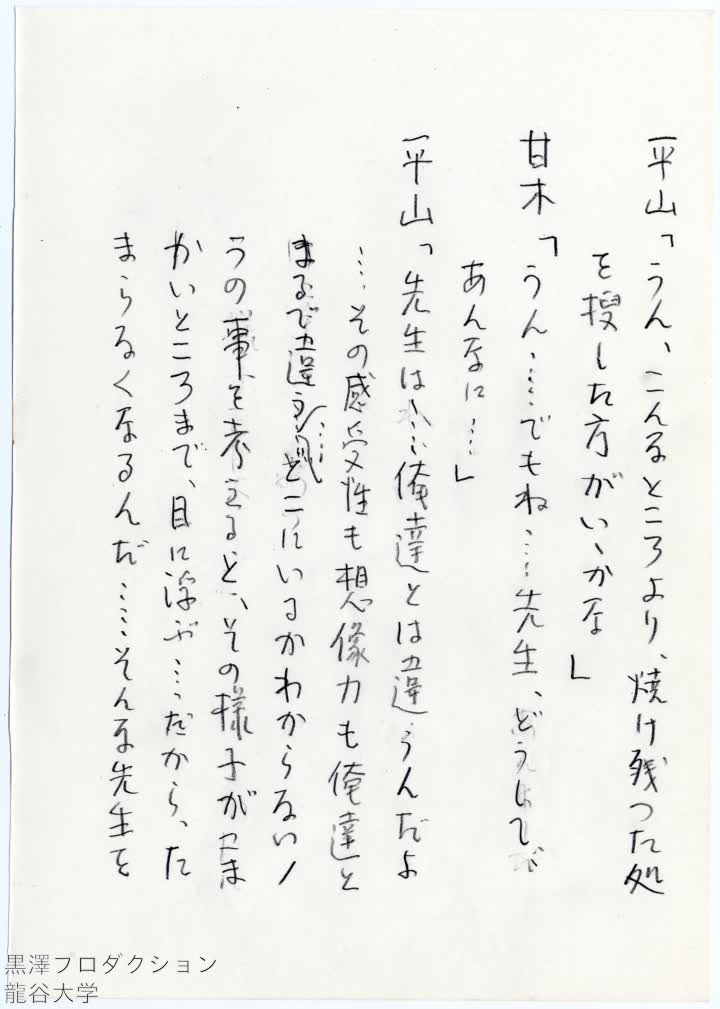 平山「うん、こんなところより、焼け残つた処
を捜した方がいゝかな」
甘木「うん……でもね……先生、どうして
あんなに……」
平山「先生は……俺達とは違うんだよ
……その感受性も想像力も俺達と
まるで違う……どこにいるかわからないノ
らの事を考えると、その様子がこま
かいところまで、目に浮ぶ……だから、た
まらなくなるんだ……そんな先生を
黒澤プロダクション
龍谷大学